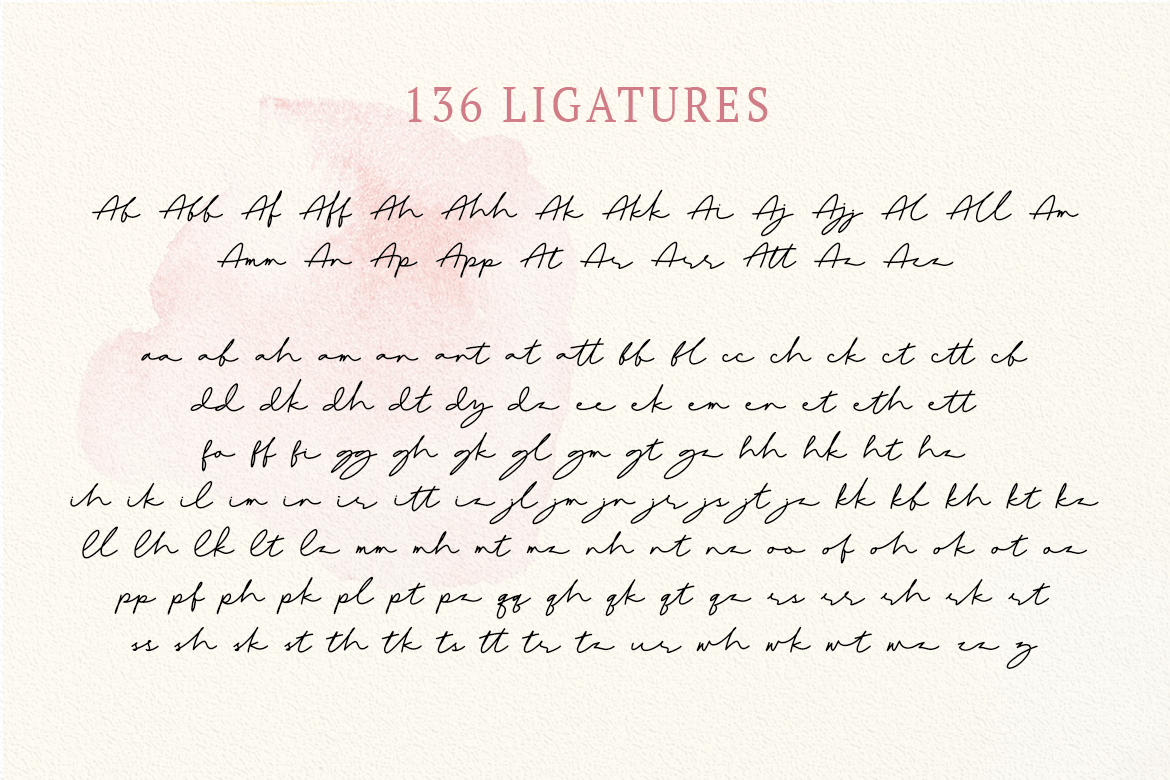 136 LIGATURES
Ab Abb Af Aff Ah Ahh Ak Akk Ai Aj Ajj Al All Am
Amm An Ap App At Ar Arr Att Az Azz
aa ab ah am an ant at att bb bl cc ch ck ct ctt cb
dd dk dh dt dy dz ee ek em en et eth ett
fa ff fi gg gh gk gl gm gt gz hh hk ht hz
ih ik il im in ir itt iz jl jm jn jr js jt jz kk kb kh kt kz
ll lh lk lt lz mm mh mt mz nh nt nz oo of oh ok ot oz
pp pf ph pk pl pt pz qq qh qk qt qz rs rr rh rk rt
ss sh sk st th tk ts tt tr tz ur wh wk wt wz zz z